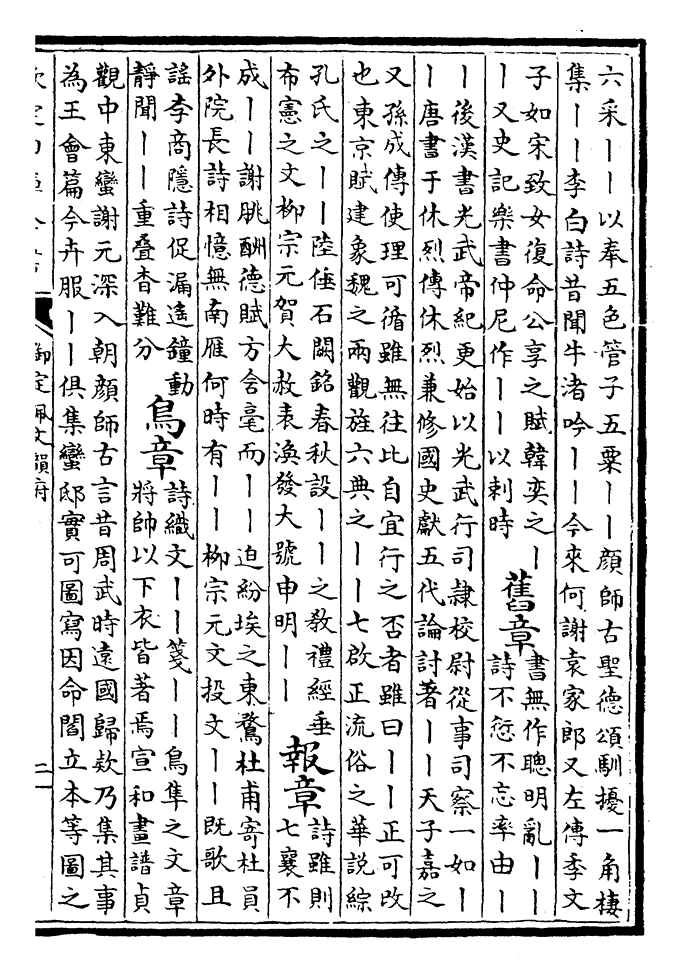 六采丨丨以奉五色管子五粟丨丨顔師古聖德頌馴擾一角棲
集丨丨李白詩昔聞牛渚吟丨丨今來何謝袁家郎又左傳季文
子如宋致女復命公享之賦韓奕之丨
丨又史記樂書仲尼作丨丨以刺時
舊章
書無作聰明亂丨丨
詩不愆不忘率由丨
丨後漢書光武帝紀更始以光武行司隸校尉從事司察一如丨
丨唐書于休烈傳休烈兼修國史獻五代論討著丨丨天子嘉之
又孫成傳使理可循雖無往比自宜行之否者雖曰丨丨正可改
也東京賦建象魏之兩觀旌六典之丨丨七啟正流俗之華説綜
孔氏之丨丨陸倕石闕銘春秋設丨丨之敎禮經垂
布憲之文柳宗元賀大赦表渙發大號申明丨丨
報章
詩雖則
七襄不
成丨丨謝朓酬德賦方含毫而丨丨迫紛埃之東騖杜甫寄杜員
外院長詩相憶無南雁何時有丨丨柳宗元文投文丨丨既歌且
謡李商隱詩促漏遙鐘動
靜聞丨丨重疊杳難分
鳥章
詩織文丨丨箋丨丨鳥隼之文章
將帥以下衣皆著焉宣和畫譜貞
觀中東蠻謝元深入朝顔師古言昔周武時遠國歸欵乃集其事
為王會篇今卉服丨丨俱集蠻邸實可圖寫因命閻立本等圖之
御定佩文韻府
二